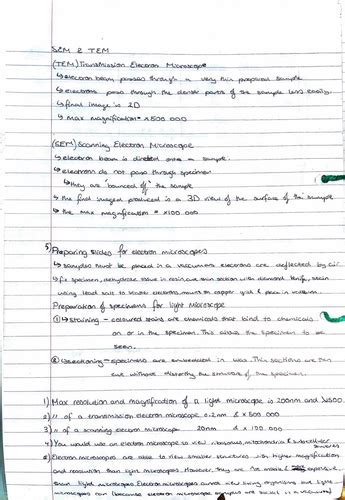 SEM & TEM
(TEM) Transmission Electron Microscope
↳ electron beam passes through a very thin prepared sample
↳ electrons pass through the denser parts of the sample less easily.
↳ final image is 2D
↳ max magnification = x500 000
(SEM) Scanning Electron Microscope
↳ electron beam is directed onto a sample.
↳ electrons do not pass through specimen
↳ they are 'bounced off' the sample
↳ the final image produced is a 3D view of the surface of the sample
↳ the max magnification = x100 000
5) Preparing slides for electron microscopes
↳ samples must be placed in a vaccumm electrons are deflected by air
↳ fix specimen, dehydrate tissue in resin, cut thin section with diamond knife, stain
using lead salt to scatter electrons, mount on copper grid & place in vaccumm.
Preparation of specimens for light microscope
① ↳ staining - coloured stains are chemicals that bind to chemicals
on or in the specimen. This allows the specimen to be
seen.
② sectioning - specimens are embedded in wax. Thin sections are then
cut without distorting the structure of the specimen.
1) Max resolution and magnification of a light microscope is 200nm and x1500.
2) // of a transmission electron microscope 0.2nm & x500 000
3) // of a scanning electron microscope 20nm & x100 000
4) You would use an electron microscope to view ribosomes, mitochondria & subcellular
structures
5) Electron microscopes are able to view smaller structures with higher magnification
and resolution than light microscopes. However they are more expensive
than light microscopes. Electron microscopes cannot view living organisms but light
microscopes can (because electron microscope are in a vaccumm)